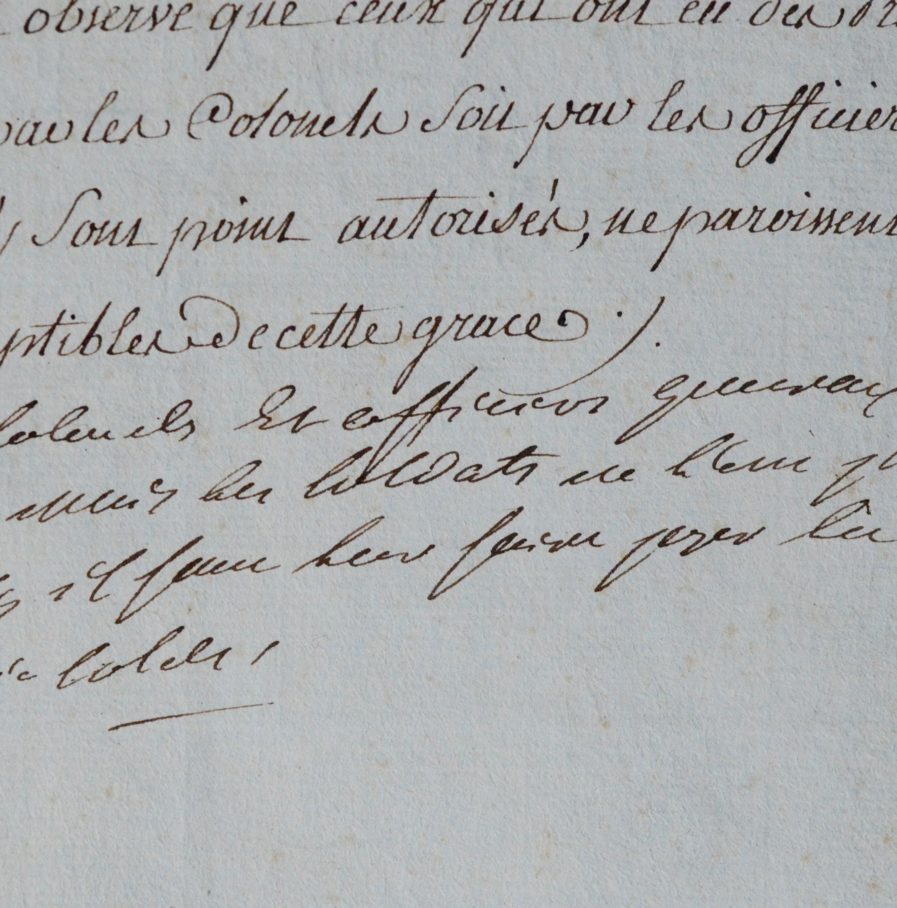 observe que ceux qui ont eu des
par les Colonels Soit par les officier
Sont point autorisés, ne paroissent
ptibles De cette grace.
Colonels Et officiers generaux
mais les soldats ne l'ont
il faut leur faire payer
solde,